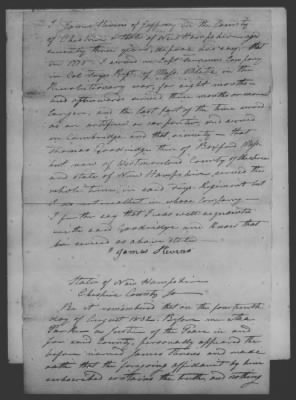 I James Stevens of Jaffrey in the County
of Cheshire & State of New Hampshire age
seventy three years, depose and say, that
in 1775 I served in Capt Townes Company
in Col Fryes Regt of Mass. State, in the
Revolutionary war, for eight months
and afterwards served three months or more
longer, and the last part of the time served
as an artificer my portion, and served
in Cambridge and that vicinity - that
Thomas Goodridge then of Boxford Mass
but now of Westmoreland County of Cheshire
and State of New Hampshire, served the
whole time, in said Frye Regiment but
I do not recollect in whose Company -
I further say that I was well acquainted
with the said Goodridge and know that
he served as above stated
James Stevens
State of New Hampshire
Cheshire County Ss
Be it remembered that on the fourteenth
day of August 1832. Before me Asa
Parker a Justice of the Peace in and
for said County, personally appeared the
before named James Stevens and made
oath that the foregoing affidavit by him
subscribed contains the truth and nothing